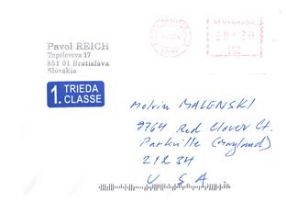 Pavol REICH
Tupolevova 17
851 01 Bratislava
Slovakia
1. TRIEDA
CLASSE
Melvin MALENSKI
9764 Red Clover Ct.
Parkville (Maryland)
21234
U S A